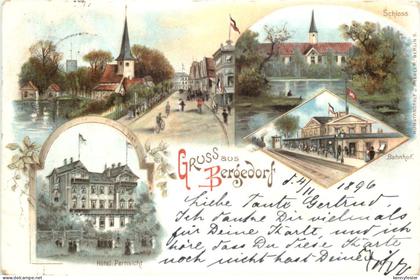 Schloss
Gruss aus
Bergedorf
Bahnhof.
Hôtel Fernsicht
d. 4/11 1896
Liebe Tante Gertrud.
Ich danke Dir vielmals
für Deine Karte, und ich
höre dass Du diese Karte
noch nicht hast. Deine